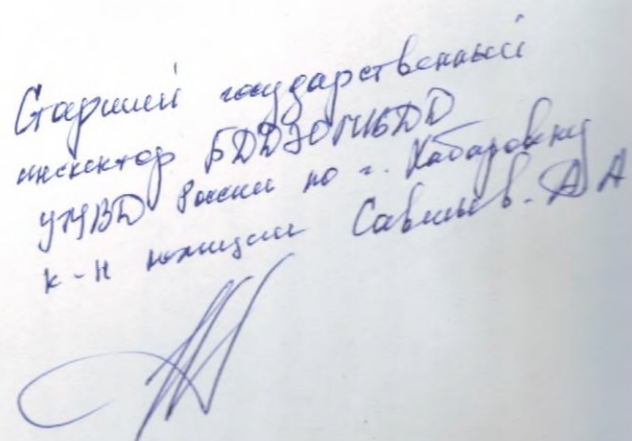 Старший государственный
инспектор БДД ОГИБДД
УМВД России по г. Хабаровску
к-н полиции А А